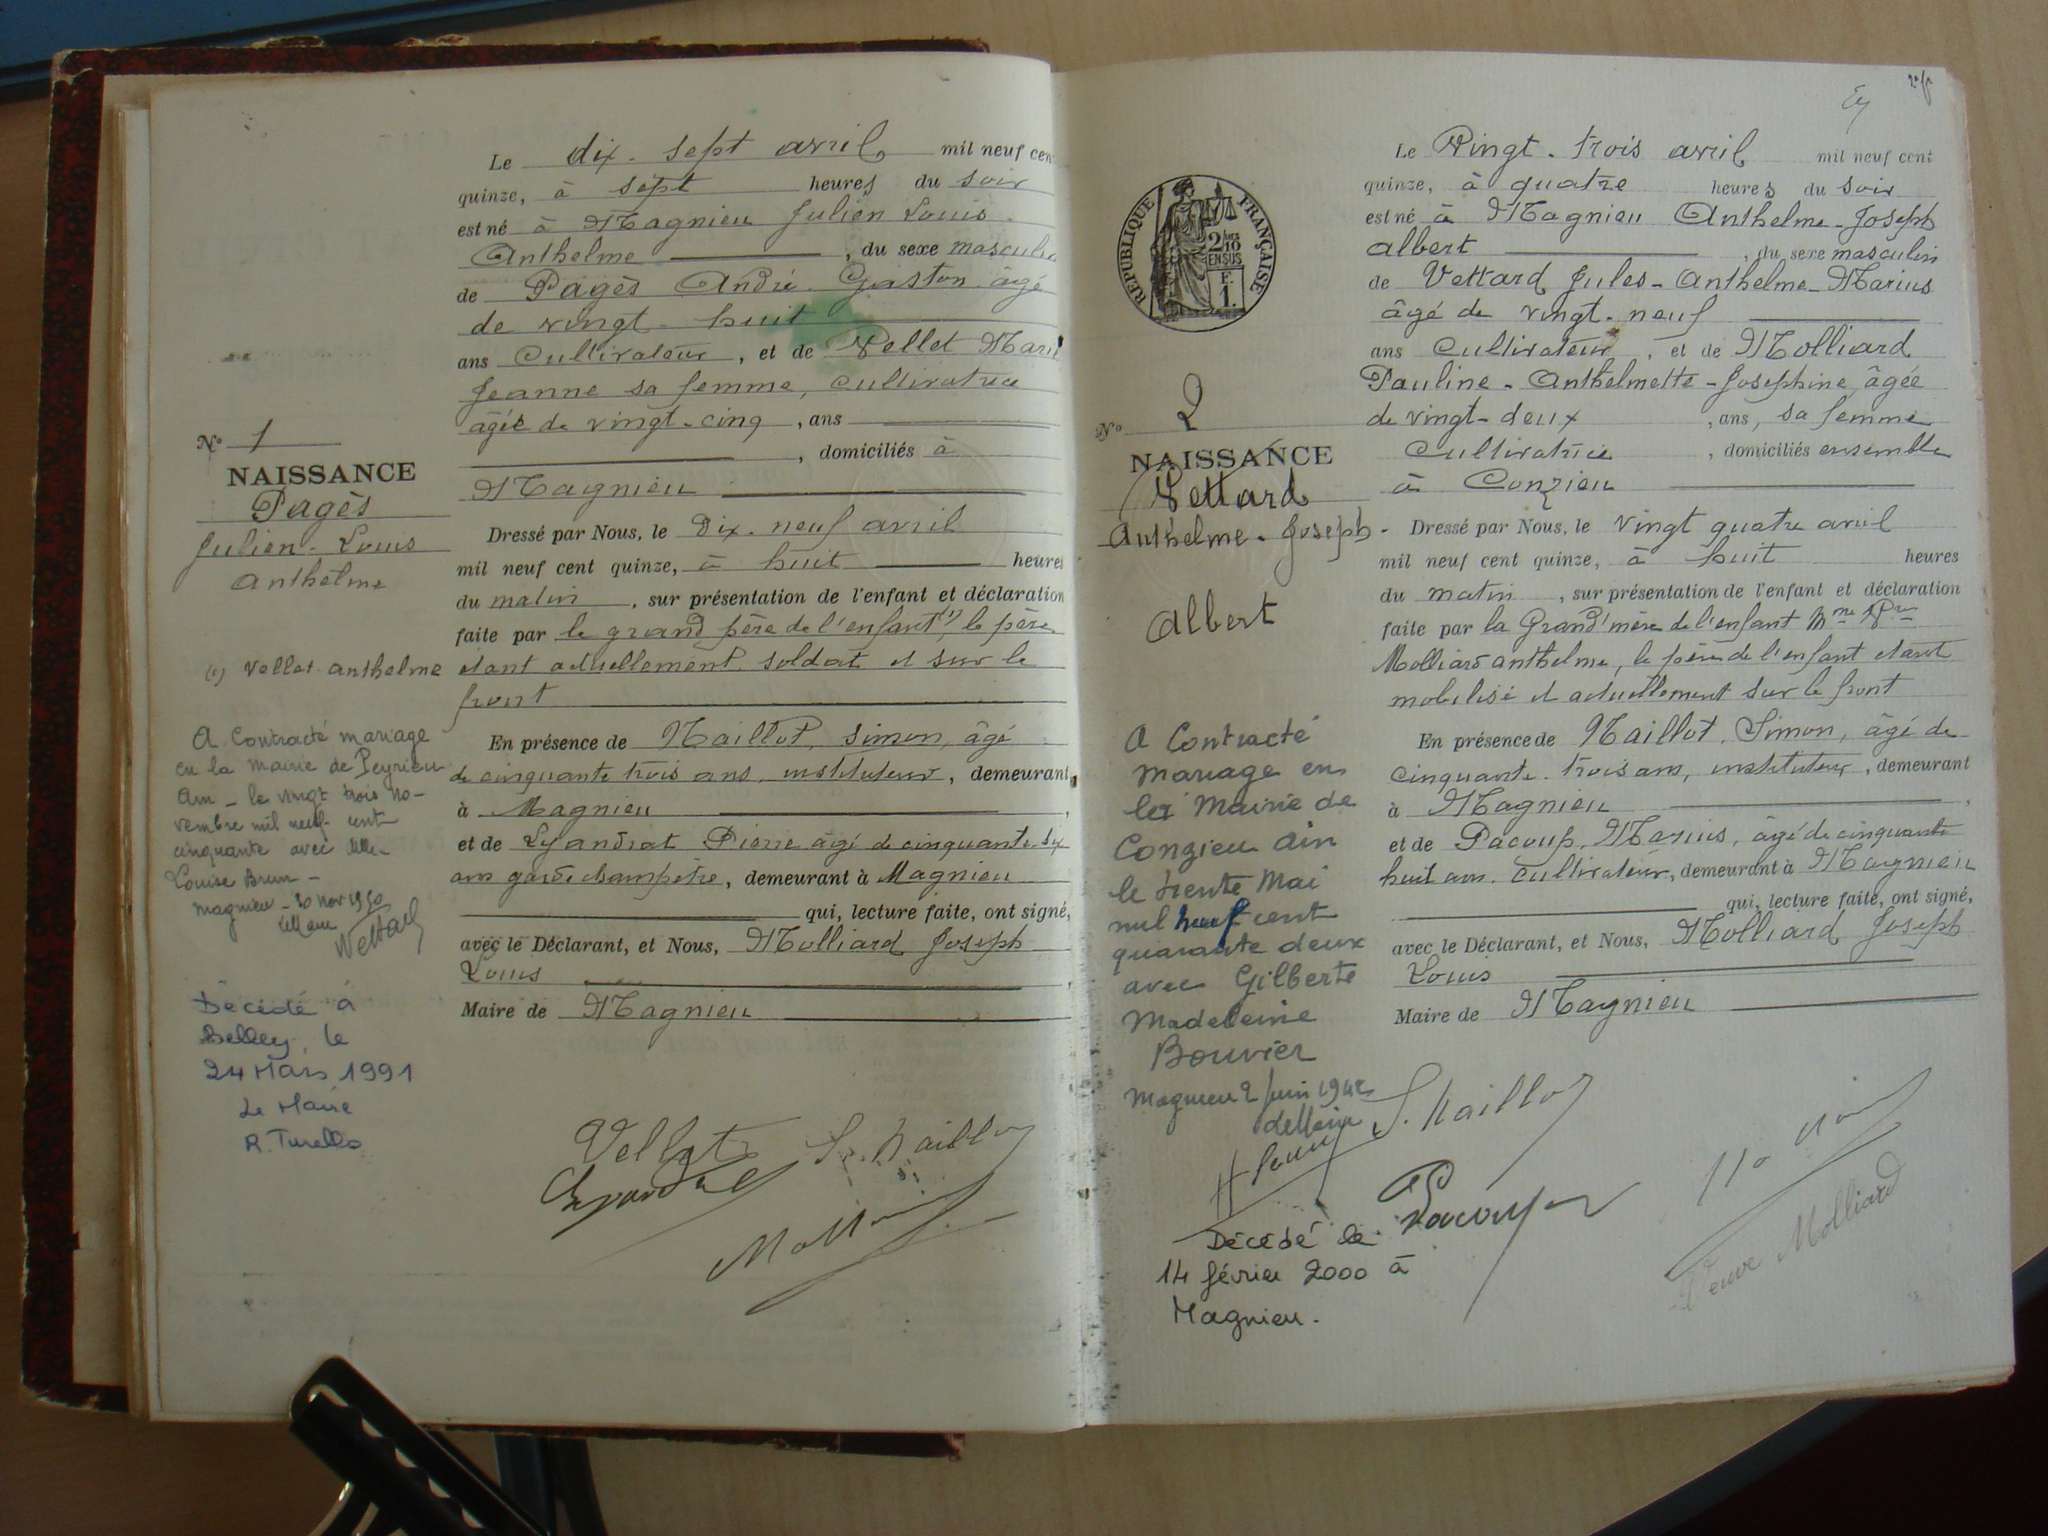 Le dix-sept avril mil neuf cent
quinze, à sept heures du soir
est né à Magnieu Julien Louis
Anthelme, du sexe masculin
de Pagès André Gaston âgé
de vingt-huit
ans Cultivateur, et de Vellet Marie
Jeanne sa femme, cultivatrice
âgée de vingt-cinq, ans
, domiciliés à
Magnieu
Dressé par Nous, le Dix-neuf avril
mil neuf cent quinze, à huit heures
du matin, sur présentation de l'enfant et déclaration
faite par le grand père de l'enfant (1), le père
étant actuellement soldat et sur le
front
En présence de Naillot, Simon, âgé
de cinquante trois ans, instituteur, demeurant
à Magnieu,
et de Lyandrat Pierre âgé de cinquante-six
ans garde champêtre, demeurant à Magnieu
qui, lecture faite, ont signé,
avec le Déclarant, et Nous, Molliard Joseph
Louis,
Maire de Magnieu
Vellet S. Naillot
Lyandrat
Molliard
No 1
NAISSANCE
Pagès
Julien-Louis
Anthelme
(1) Vellet Anthelme
A Contracté mariage
en la Mairie de Peyrieu
Ain - le vingt trois no-
vembre mil neuf cent
cinquante avec Mlle
Louise Brun -
Magnieu - 30 Nov 1950
Vettard
Décédé à
Belley, le
24 Mars 1991
Le Maire
R. Turello
RÉPUBLIQUE FRANÇAISE
2/10
EN SUS
F.
1.
No 2
NAISSANCE
Vettard
Anthelme-Joseph-
Albert
A Contracté
mariage en
la Mairie de
Conzieu Ain
le trente Mai
mil neuf cent
quarante deux
avec Gilberte
Madeleine
Bouvier
Magnieu 2 Juin 1942
Décédé le
14 février 2000 à
Magnieu.
Le Vingt-trois avril mil neuf cent
quinze, à quatre heures du soir
est né à Magnieu Anthelme-Joseph
Albert, du sexe masculin
de Vettard Jules-Anthelme-Marius
âgé de vingt-neuf
ans Cultivateur, et de Molliard
Pauline-Anthelmette-Josephine âgée
de vingt-deux, ans, sa femme
Cultivatrice, domiciliés ensemble
à Conzieu
Dressé par Nous, le vingt quatre avril
mil neuf cent quinze, à huit heures
du matin, sur présentation de l'enfant et déclaration
faite par la Grand'mère de l'enfant Mme Vve
Molliard Anthelme, le père de l'enfant étant
mobilisé et actuellement sur le front
En présence de Naillot, Simon, âgé de
cinquante-trois ans, instituteur, demeurant
à Magnieu,
et de Pacoup, Marius, âgé de cinquante
huit ans, Cultivateur, demeurant à Magnieu
qui, lecture faite, ont signé,
avec le Déclarant, et Nous, Molliard Joseph
Louis
Maire de Magnieu
S. Naillot
Veuve Molliard